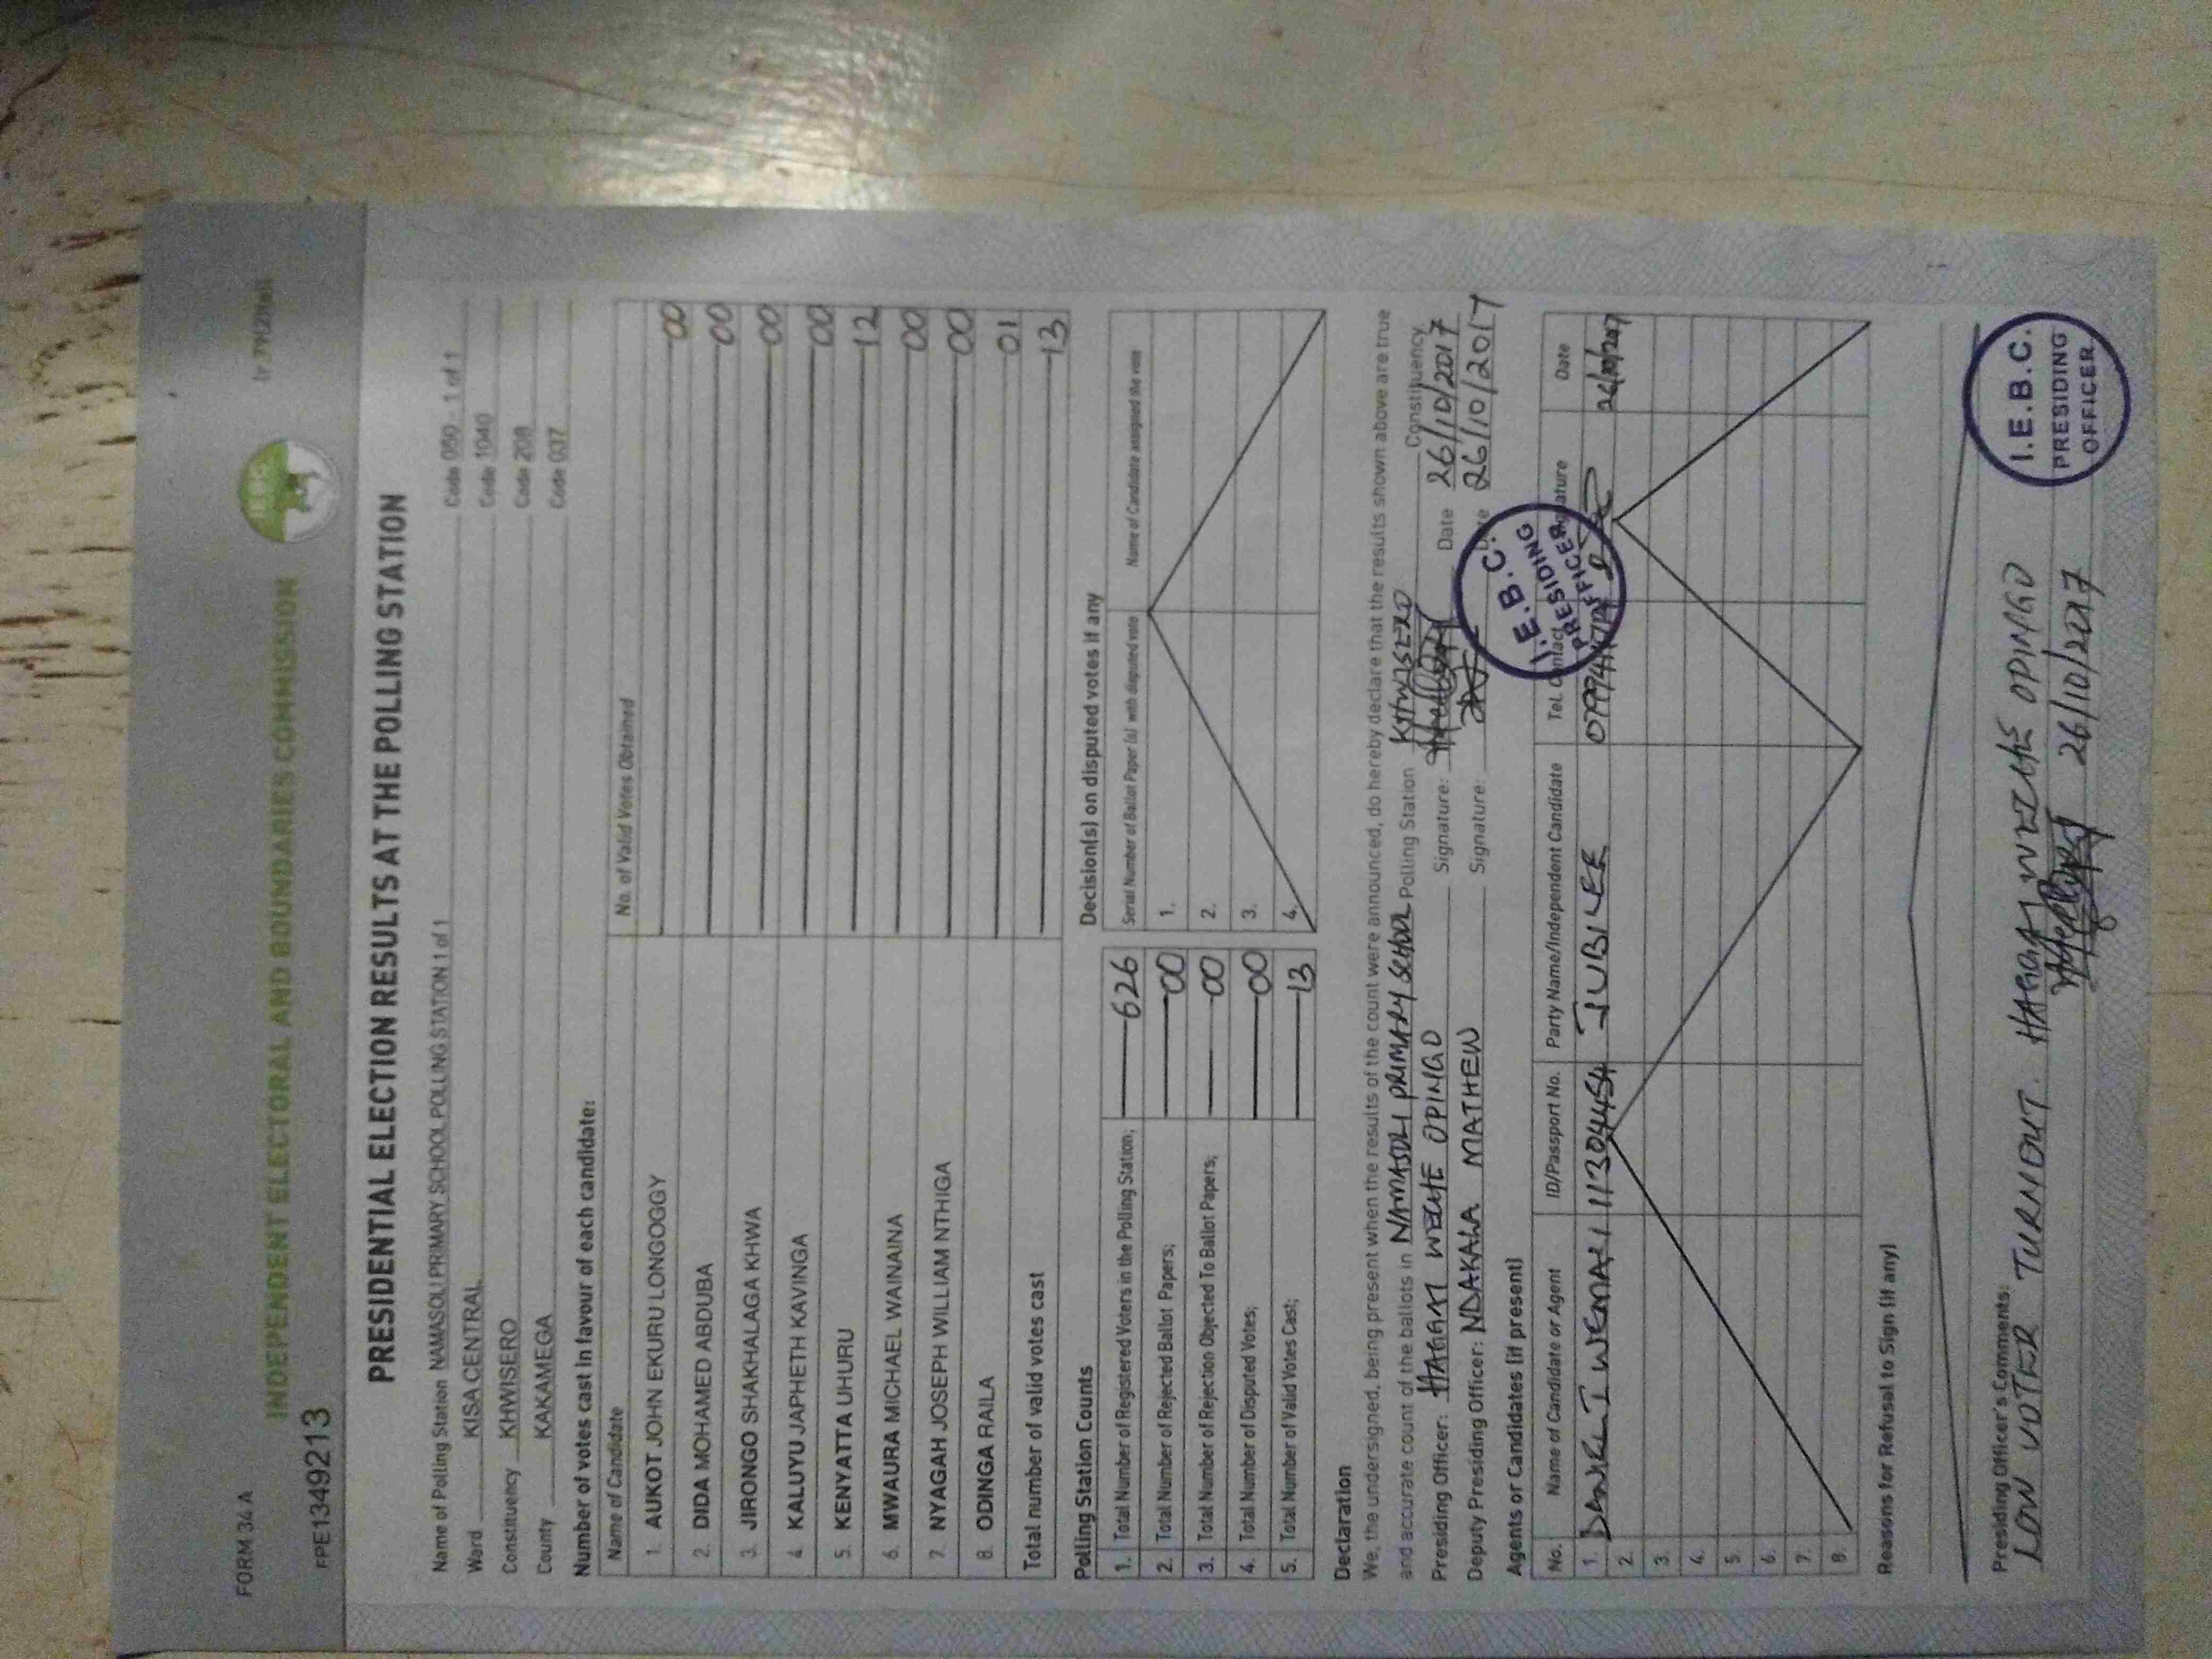 FORM 34 A
INDEPENDENT ELECTORAL AND BOUNDARIES COMMISSION
IEBC
FPE1349213
PRESIDENTIAL ELECTION RESULTS AT THE POLLING STATION
Name of Polling Station NAMASOLI PRIMARY SCHOOL POLLING STATION 1 of 1 Code 050 - 1 of 1
Ward KISA CENTRAL Code 1040
Constituency KHWISERO Code 208
County KAKAMEGA Code 037
Number of votes cast in favour of each candidate:
Name of Candidate No. of Valid Votes Obtained
1. AUKOT JOHN EKURU LONGOGGY 00
2. DIDA MOHAMED ABDUBA 00
3. JIRONGO SHAKHALAGA KHWA 00
4. KALUYU JAPHETH KAVINGA 00
5. KENYATTA UHURU 12
6. MWAURA MICHAEL WAINAINA 00
7. NYAGAH JOSEPH WILLIAM NTHIGA 00
8. ODINGA RAILA 01
Total number of valid votes cast 13
Polling Station Counts
1. Total Number of Registered Voters in the Polling Station; 626
2. Total Number of Rejected Ballot Papers; 00
3. Total Number of Rejection Objected To Ballot Papers; 00
4. Total Number of Disputed Votes; 00
5. Total Number of Valid Votes Cast; 13
Decision(s) on disputed votes if any
Serial Number of Ballot Paper (s) with disputed vote Name of Candidate assigned the vote
1.
2.
3.
4.
Declaration
We, the undersigned, being present when the results of the count were announced, do hereby declare that the results shown above are true
and accurate count of the ballots in NAMASOLI PRIMARY SCHOOL Polling Station KHWISERO Constituency
Presiding Officer: HAGGAI WECHE OPINGO Signature: Date 26/10/2017
Deputy Presiding Officer: NDAKALA MATHEW Signature: 26/10/2017
I.E.B.C.
PRESIDING
OFFICER
Agents or Candidates (if present)
No. Name of Candidate or Agent ID/Passport No. Party Name/Independent Candidate Tel. Contact Signature Date
1. 11304454 JUBILEE 26/10/2017
2.
3.
4.
5.
6.
7.
8.
Reasons for Refusal to Sign (if any)
Presiding Officer's Comments:
LOW VOTER TURNOUT. HAGGAI WECHE OPINGO
26/10/2017
I.E.B.C.
PRESIDING
OFFICER